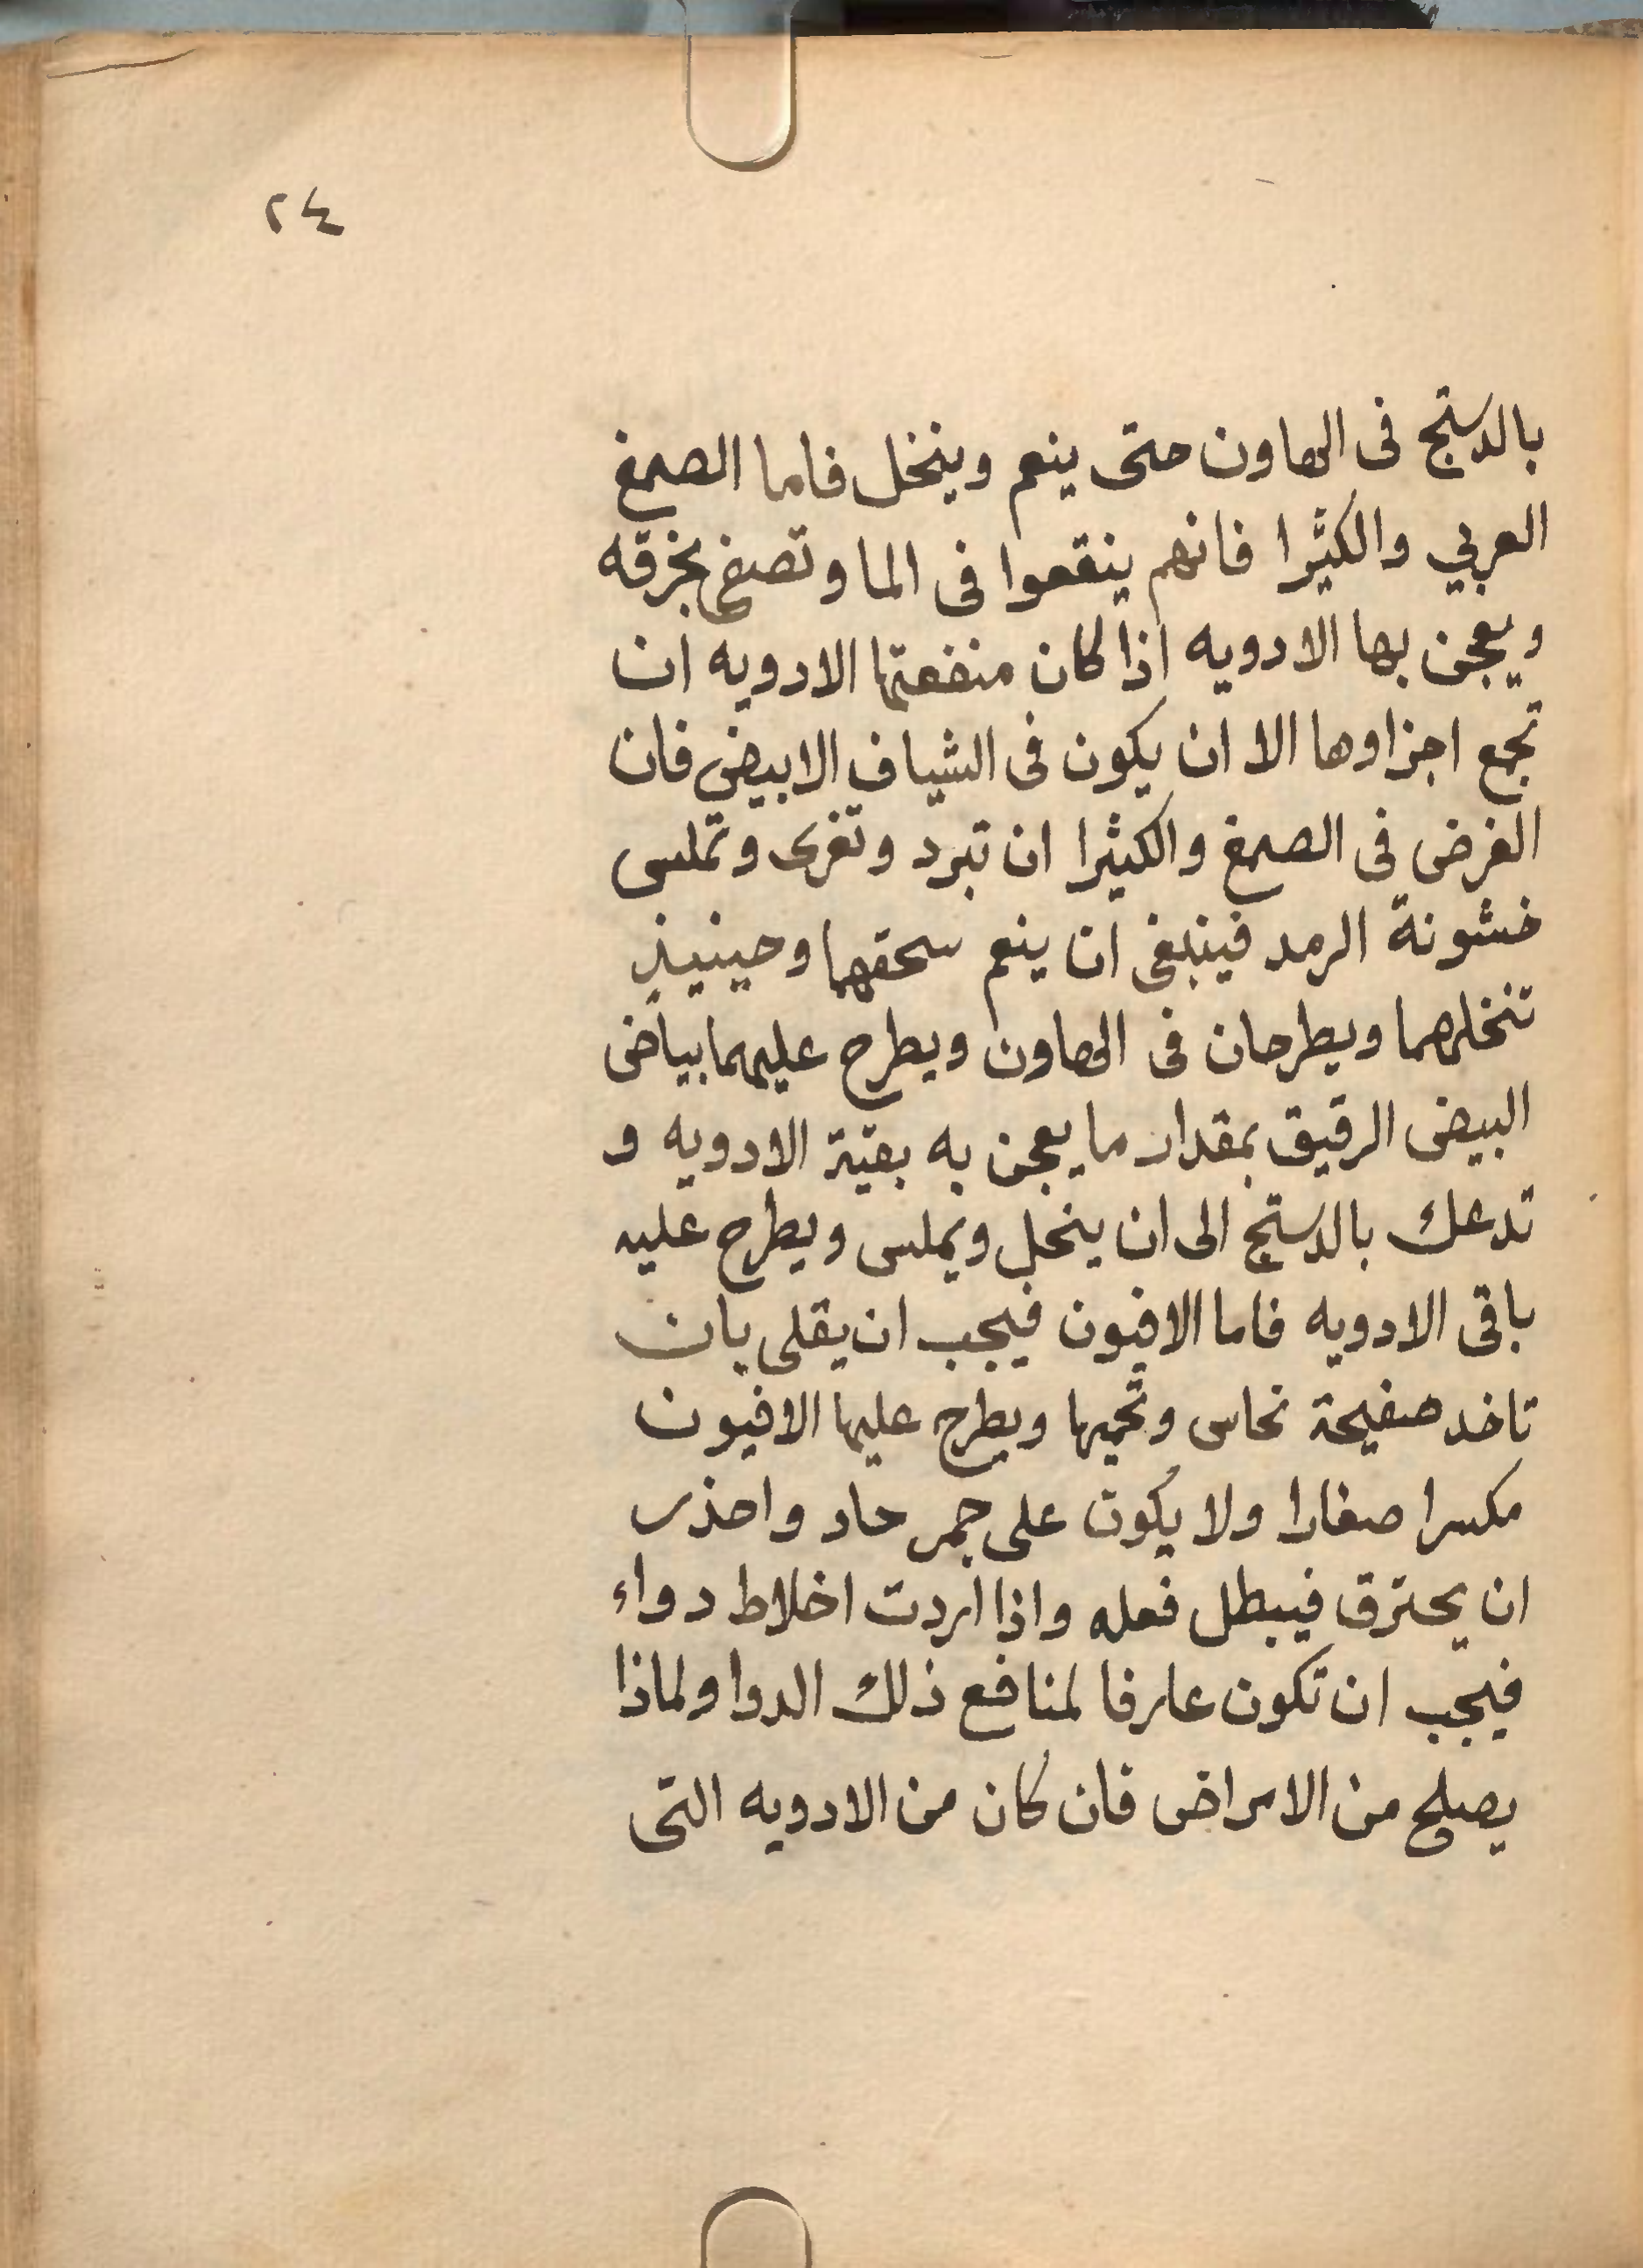 ٢٤
بالدستج فى الهاون حتى ينعم وينخل فاما الصمغ
العربي والكثيرا فانهم ينقعوا فى الما وتصفى بخرقه
ويعجن بها الادويه اذا كان منفعتها الادويه ان
تجمع اجزاوها الا ان يكون فى الشياف الابيض فان
الغرض فى الصمغ والكثيرا ان تبرد وتغرى وتملس
خشونة الرمد فينبغى ان ينعم سحقهما وحينيذ
تنخلهما ويطرحان فى الهاون ويطرح عليهما بياض
البيض الرقيق بمقدار ما يعجن به بقية الادويه و
تدعك بالدستج الى ان ينحل ويملس ويطرح عليه
باقى الادويه فاما الافيون فيجب ان يقلى بان
تاخد صفيحة نحاس وتحميها ويطرح عليها الافيون
مكسرا صغارا ولا يكون على جمر حاد واحذر
ان يحترق فيبطل فعله واذا اردت اخلاط دواء
فيجب ان تكون عارفا لمنافع ذلك الدوا ولماذا
يصلح من الامراض فان كان من الادويه التى